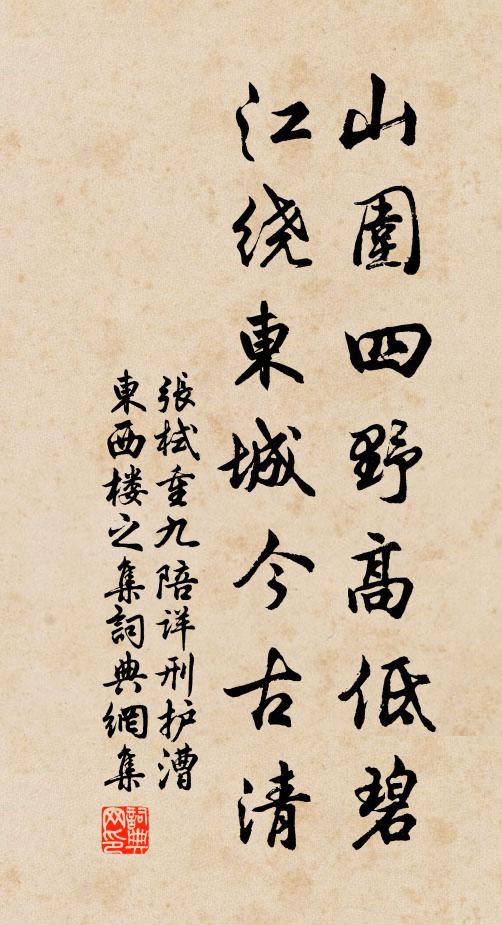 山圍四野高低碧
江绕東城今古清
張栻重九陪详刑护漕
東西楼之集詞典網集
詞典网印